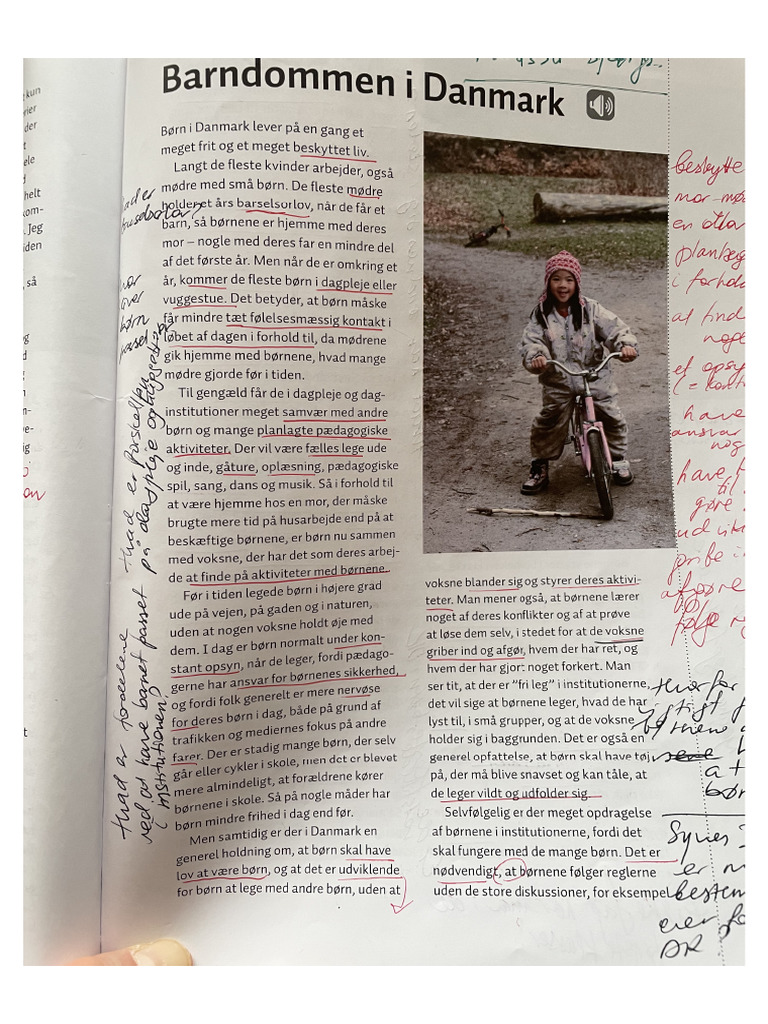 Barndommen i Danmark
Børn i Danmark lever på en gang et
meget frit og et meget beskyttet liv.
Langt de fleste kvinder arbejder, også
mødre med små børn. De fleste mødre
holder et års barselsorlov, når de får et
barn, så børnene er hjemme med deres
mor – nogle med deres far en mindre del
af det første år. Men når de er omkring et
år, kommer de fleste børn i dagpleje eller
vuggestue. Det betyder, at børn måske
får mindre tæt følelsesmæssig kontakt i
løbet af dagen i forhold til, da mødrene
gik hjemme med børnene, hvad mange
mødre gjorde før i tiden.
Til gengæld får de i dagpleje og dag-
institutioner meget samvær med andre
børn og mange planlagte pædagogiske
aktiviteter. Der vil være fælles lege ude
og inde, gåture, oplæsning, pædagogiske
spil, sang, dans og musik. Så i forhold til
at være hjemme hos en mor, der måske
brugte mere tid på husarbejde end på at
beskæftige børnene, er børn nu sammen
med voksne, der har det som deres arbej-
de at finde på aktiviteter med børnene.
Før i tiden legede børn i højere grad
ude på vejen, på gaden og i naturen,
uden at nogen voksne holdt øje med
dem. I dag er børn normalt under kon-
stant opsyn, når de leger, fordi pædago-
gerne har ansvar for børnenes sikkerhed,
og fordi folk generelt er mere nervøse
for deres børn i dag, både på grund af
trafikken og mediernes fokus på andre
farer. Der er stadig mange børn, der selv
går eller cykler i skole, men det er blevet
mere almindeligt, at forældrene kører
børnene i skole. Så på nogle måder har
børn mindre frihed i dag end før.
Men samtidig er der i Danmark en
generel holdning om, at børn skal have
lov at være børn, og at det er udviklende
for børn at lege med andre børn, uden at
voksne blander sig og styrer deres aktivi-
teter. Man mener også, at børnene lærer
noget af deres konflikter og af at prøve
at løse dem selv, i stedet for at de voksne
griber ind og afgør, hvem der har ret, og
hvem der har gjort noget forkert. Man
ser tit, at der er "fri leg" i institutionerne,
det vil sige at børnene leger, hvad de har
lyst til, i små grupper, og at de voksne
holder sig i baggrunden. Det er også en
generel opfattelse, at børn skal have tøj
på, der må blive snavset og kan tåle, at
de leger vildt og udfolder sig.
Selvfølgelig er der meget opdragelse
af børnene i institutionerne, fordi det
skal fungere med de mange børn. Det er
nødvendigt, at børnene følger reglerne
uden de store diskussioner, for eksempel
hvad er
barselsorlov?
hvad er forskellen
på dagpleje og vuggestue
hvad er fordelene
ved at have barnet passet
i institutionen?
beskytte
i forhold
at finde
have
ansvar